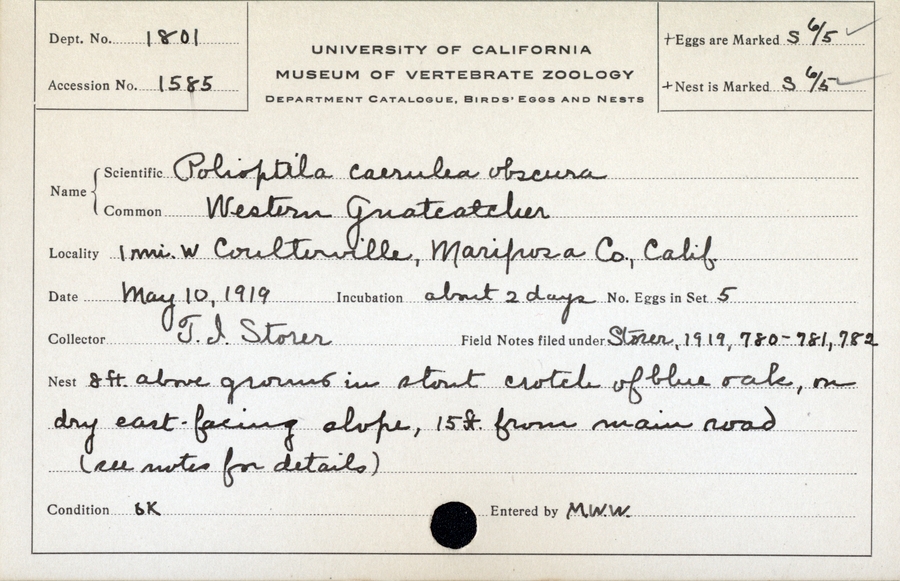 Dept. No. 1801
Accession No. 1585
UNIVERSITY OF CALIFORNIA
MUSEUM OF VERTEBRATE ZOOLOGY
DEPARTMENT CATALOGUE, BIRDS' EGGS AND NESTS
+Eggs are Marked S 6/5
+Nest is Marked S 6/5
Name
Scientific Polioptila caerulea obscura
Common Western Gnatcatcher
Locality 1 mi. W Coulterville, Mariposa Co., Calif.
Date May 10, 1919 Incubation about 2 days No. Eggs in Set 5
Collector T. I. Storer Field Notes filed under Storer, 1919, 780-781, 782
Nest 8 ft. above ground in stout crotch of blue oak, on
dry east-facing slope, 15 ft. from main road
(see notes for details)
Condition OK Entered by M.W.W.